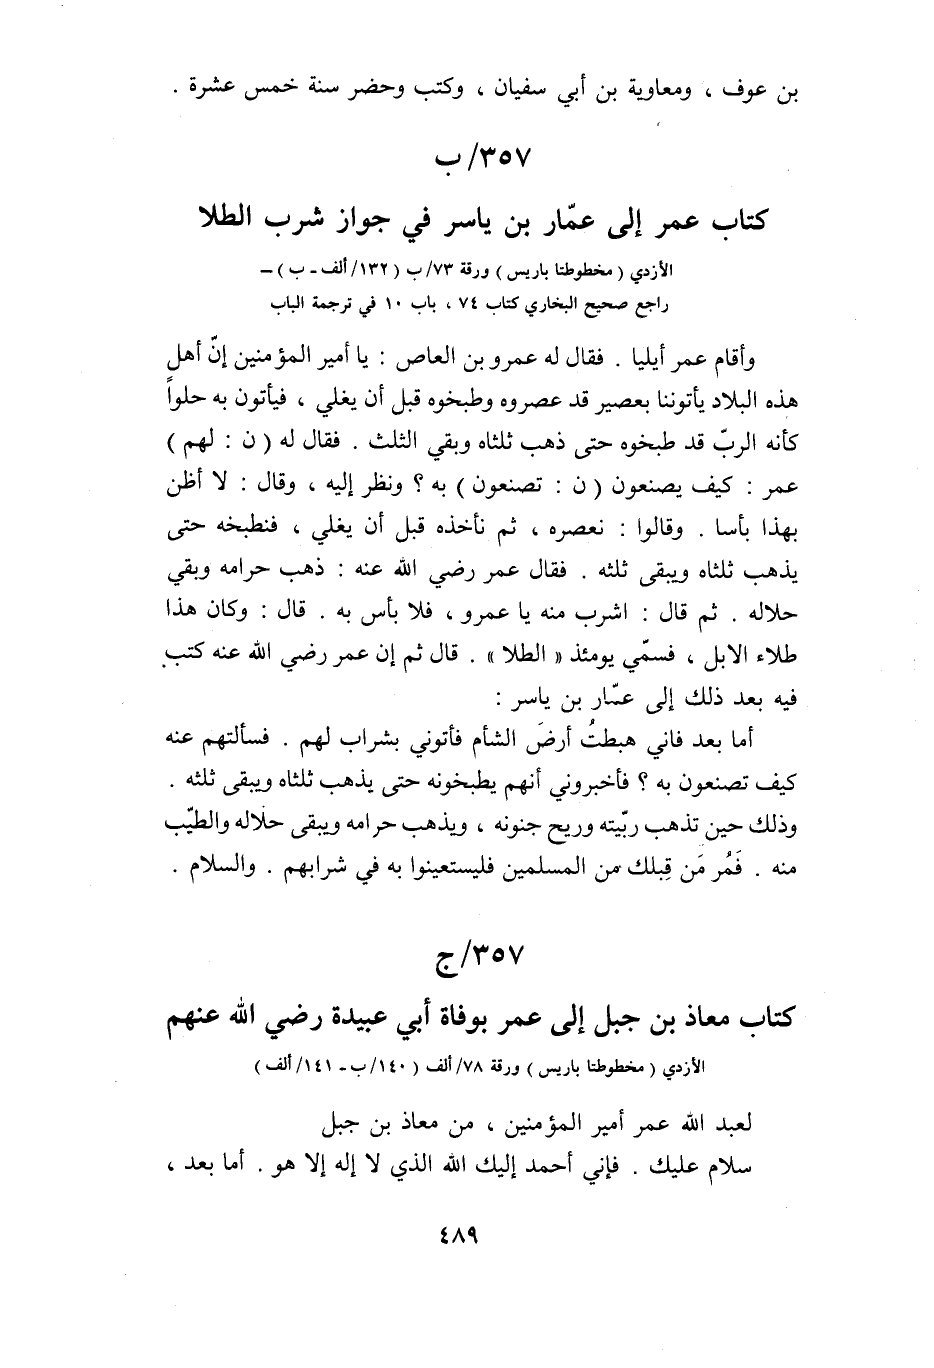 بن عوف ، ومعاوية بن أبي سفيان ، وكتب وحضر سنة خمس عشرة .
٣٥٧/ب
كتاب عمر إلى عمّار بن ياسر في جواز شرب الطلا
الأزدي ( مخطوطتا باريس ) ورقة ٧٣/ب ( ١٣٢/ألف ـ ب ) –
راجع صحيح البخاري كتاب ٧٤ ، باب ١٠ في ترجمة الباب
وأقام عمر أيليا . فقال له عمرو بن العاص : يا أمير المؤمنين إنّ أهل
هذه البلاد يأتوننا بعصير قد عصروه وطبخوه قبل أن يغلي ، فيأتون به حلواً
كأنه الربّ قد طبخوه حتى ذهب ثلثاه وبقي الثلث . فقال له ( ن : لهم )
عمر : كيف يصنعون ( ن : تصنعون ) به ؟ ونظر إليه ، وقال : لا أظن
بهذا بأسا . وقالوا : نعصره ، ثم نأخذه قبل أن يغلي ، فنطبخه حتى
يذهب ثلثاه ويبقى ثلثه . فقال عمر رضي الله عنه : ذهب حرامه وبقي
حلاله . ثم قال : اشرب منه يا عمرو ، فلا بأس به . قال : وكان هذا
طلاء الابل ، فسمّي يومئذ « الطلا » . قال ثم إن عمر رضي الله عنه كتب
فيه بعد ذلك إلى عمّار بن ياسر :
أما بعد فاني هبطتُ أرضَ الشأم فأتوني بشراب لهم . فسألتهم عنه
كيف تصنعون به ؟ فأخبروني أنهم يطبخونه حتى يذهب ثلثاه ويبقى ثلثه .
وذلك حين تذهب ربّيته وريح جنونه ، ويذهب حرامه ويبقى حلاله والطيّب
منه . فَمُر مَن قِبلك من المسلمين فليستعينوا به في شرابهم . والسلام .
٣٥٧/ج
كتاب معاذ بن جبل إلى عمر بوفاة أبي عبيدة رضي الله عنهم
الأزدي ( مخطوطتا باريس ) ورقة ٧٨/ألف ( ١٤٠/ب ـ ١٤١/ألف )
لعبد الله عمر أمير المؤمنين ، من معاذ بن جبل
سلام عليك . فإني أحمد إليك الله الذي لا إله إلا هو . أما بعد ،
٤٨٩